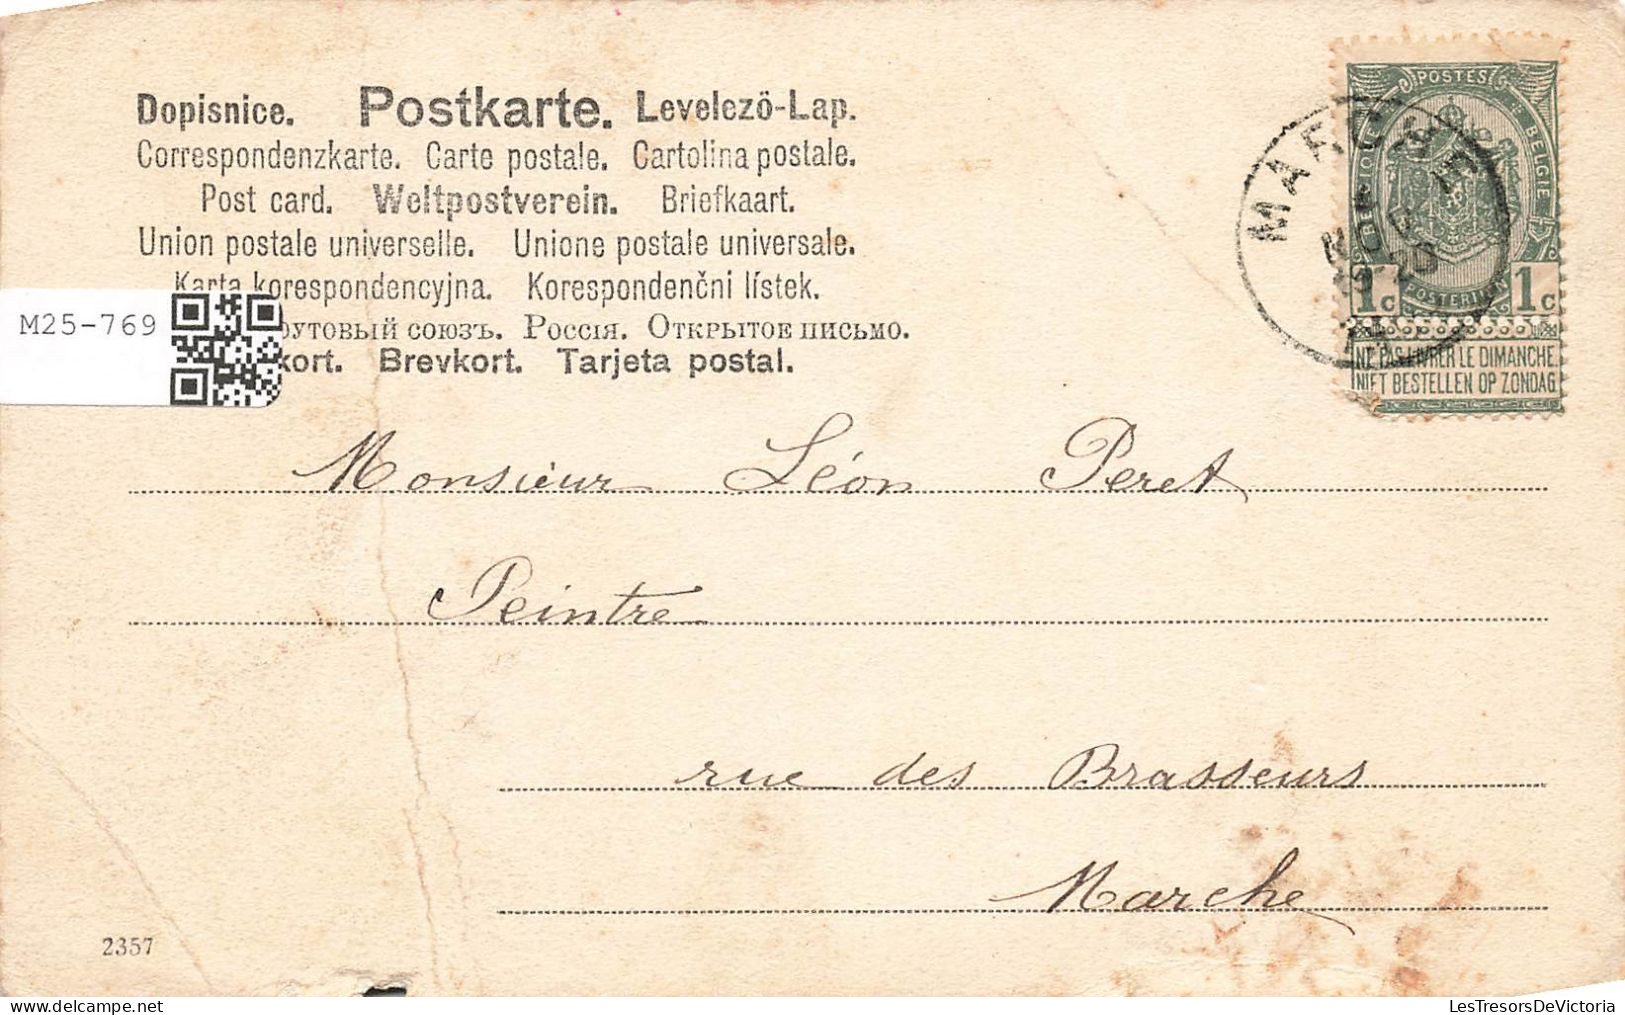 Dopisnice. Postkarte. Levelező-Lap.
Correspondenzkarte. Carte postale. Cartolina postale.
Post card. Weltpostverein. Briefkaart.
Union postale universelle. Unione postale universale.
Karta korespondencyjna. Korespondenční lístek.
M25-769
товый союзъ. Россія. Открытое письмо.
kort. Brevkort. Tarjeta postal.
POSTES
BELGIE
MARCHE
1c 1c
NE PAS LIVRER LE DIMANCHE.
NIET BESTELLEN OP ZONDAG
Monsieur Léon Peret
Peintre
rue des Brasseurs
Marche
2357
LesTresorsDeVictoria